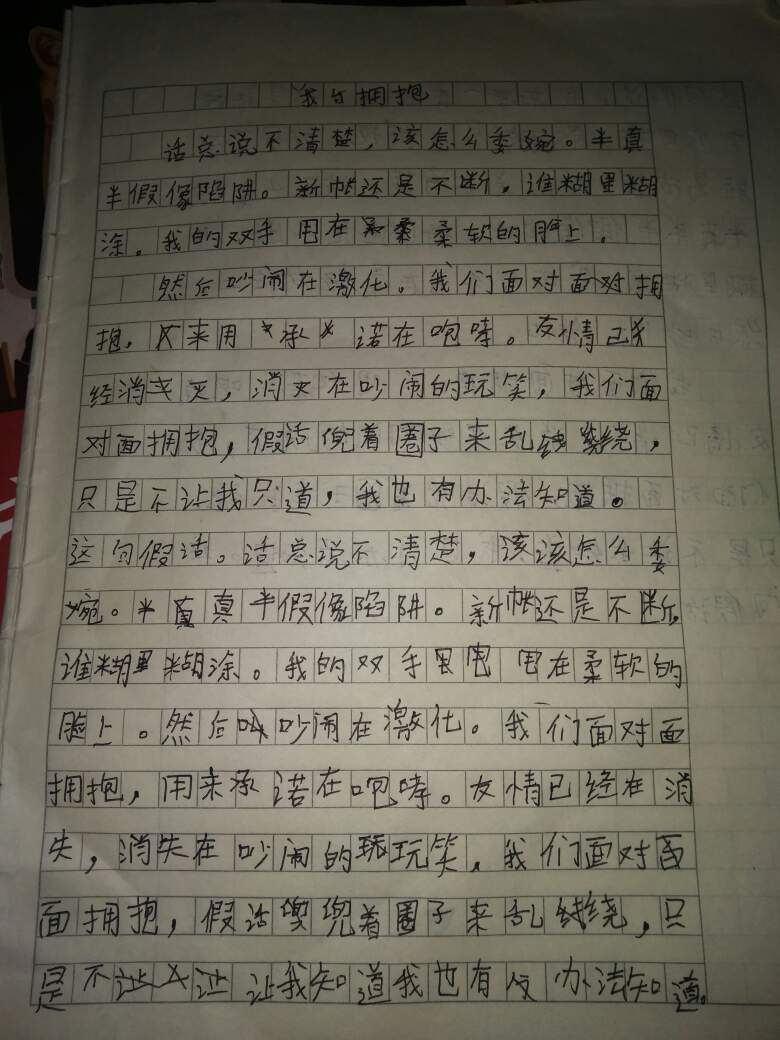 我与拥抱
话总说不清楚，该怎么委婉。半真
半假像陷阱。新帐还是不断，谁糊里糊
涂。我的双手甩在柔软的脸上，
然后吵闹在激化。我们面对面对拥
抱，来用承诺在咆哮。友情已
经消灭，消灭在吵闹的玩笑，我们面
对面拥抱，假话兜着圈子来乱绕，
只是不让我只道，我也有办法知道。
这句假话。话总说不清楚，该该怎么委
婉。真半假像陷阱。新帐还是不断，
谁糊里糊涂。我的双手甩在柔软的
脸上。然后吵闹在激化。我们面对面
拥抱，用来承诺在咆哮。友情已经在消
失，消失在吵闹的玩笑，我们面对
面拥抱，假话兜着圈子来乱绕，只
是不让我知道我也有办法知道。